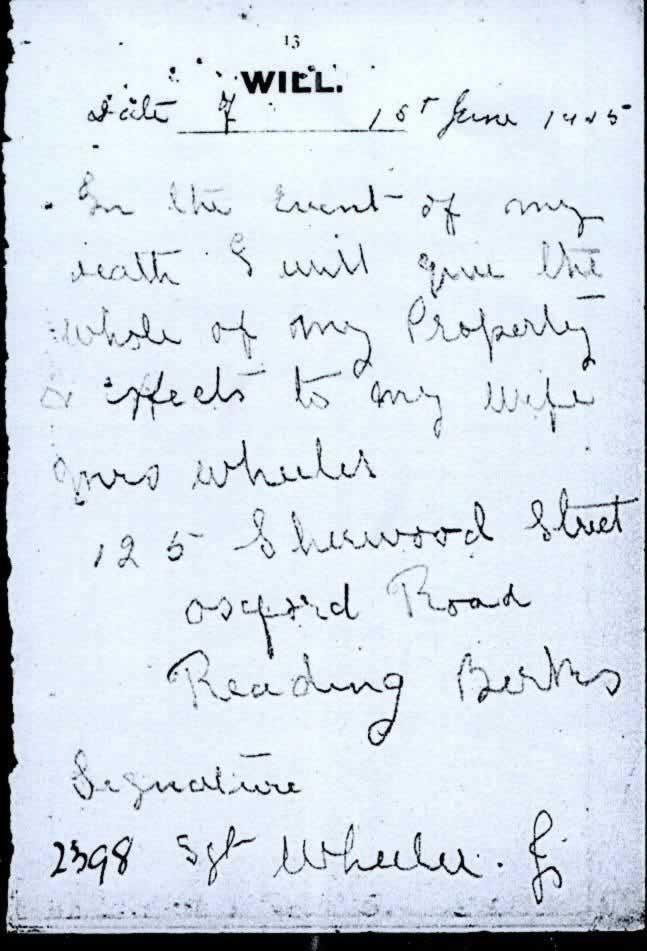 13
WILL.
Date of 1st June 1915
In the Event of my
death I will give the
whole of my Property
& effects to my wife
Mrs Wheeler
125 Sherwood Street
Oxford Road
Reading Berks
Signature
2398 Sgt Wheeler. J